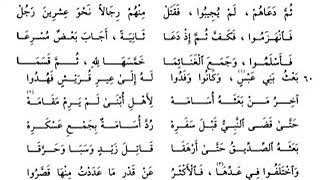 ثُمَّ دَعَاهُمْ ، لَمْ يُجِيبُوا ، فَقَتَلْ مِنْهُمْ رِجَالاً نَحْوَ عِشْرِينَ رَجُلْ
فَانْهَزَمُوا ، فَكَفَّ ثُمَّ إذْ دَعَا ثَانِيَةً ، أَجَابَ بَعْضٌ مُسْرِعَا
فَأَسْلَمُوا ، وَجَمَعَ الْغَنَائِمَا خَمَّسَهَا لِلَّهِ ، ثُمَّ قَسَمَا
٦٠ بَعْثُ بَنِي عَبْسٍ ، وَكَانُوا وَفَدُوا لَهُ إِلَى عِيرِ قُرَيْشٍ فَهُدُوا
آخِرُ مَنْ بَعَثَهُ أُسَامَهْ لِأَهْلِ أُبْنَى لَمْ يَرِمْ مَقَامَهْ
حَتَّى قَضَى النَّبِيُّ قَبْلَ سَفَرِهْ رُدَّ أُسَامَةُ بِجَمْعِ عَسْكَرِهْ
بَعَثَهُ الصِّدِّيقُ حَتَّى أَرْهَقَا قَاتِلَ زَيْدٍ وَسَبَا وَحَرَّقَا
وَاخْتَلَفُوا فِي عَدِّهَا ، فَالْأَكْثَرُ عَنْ قَدْرِ مَا عَدَدْتُ مِنْهَا قَصَّرُوا